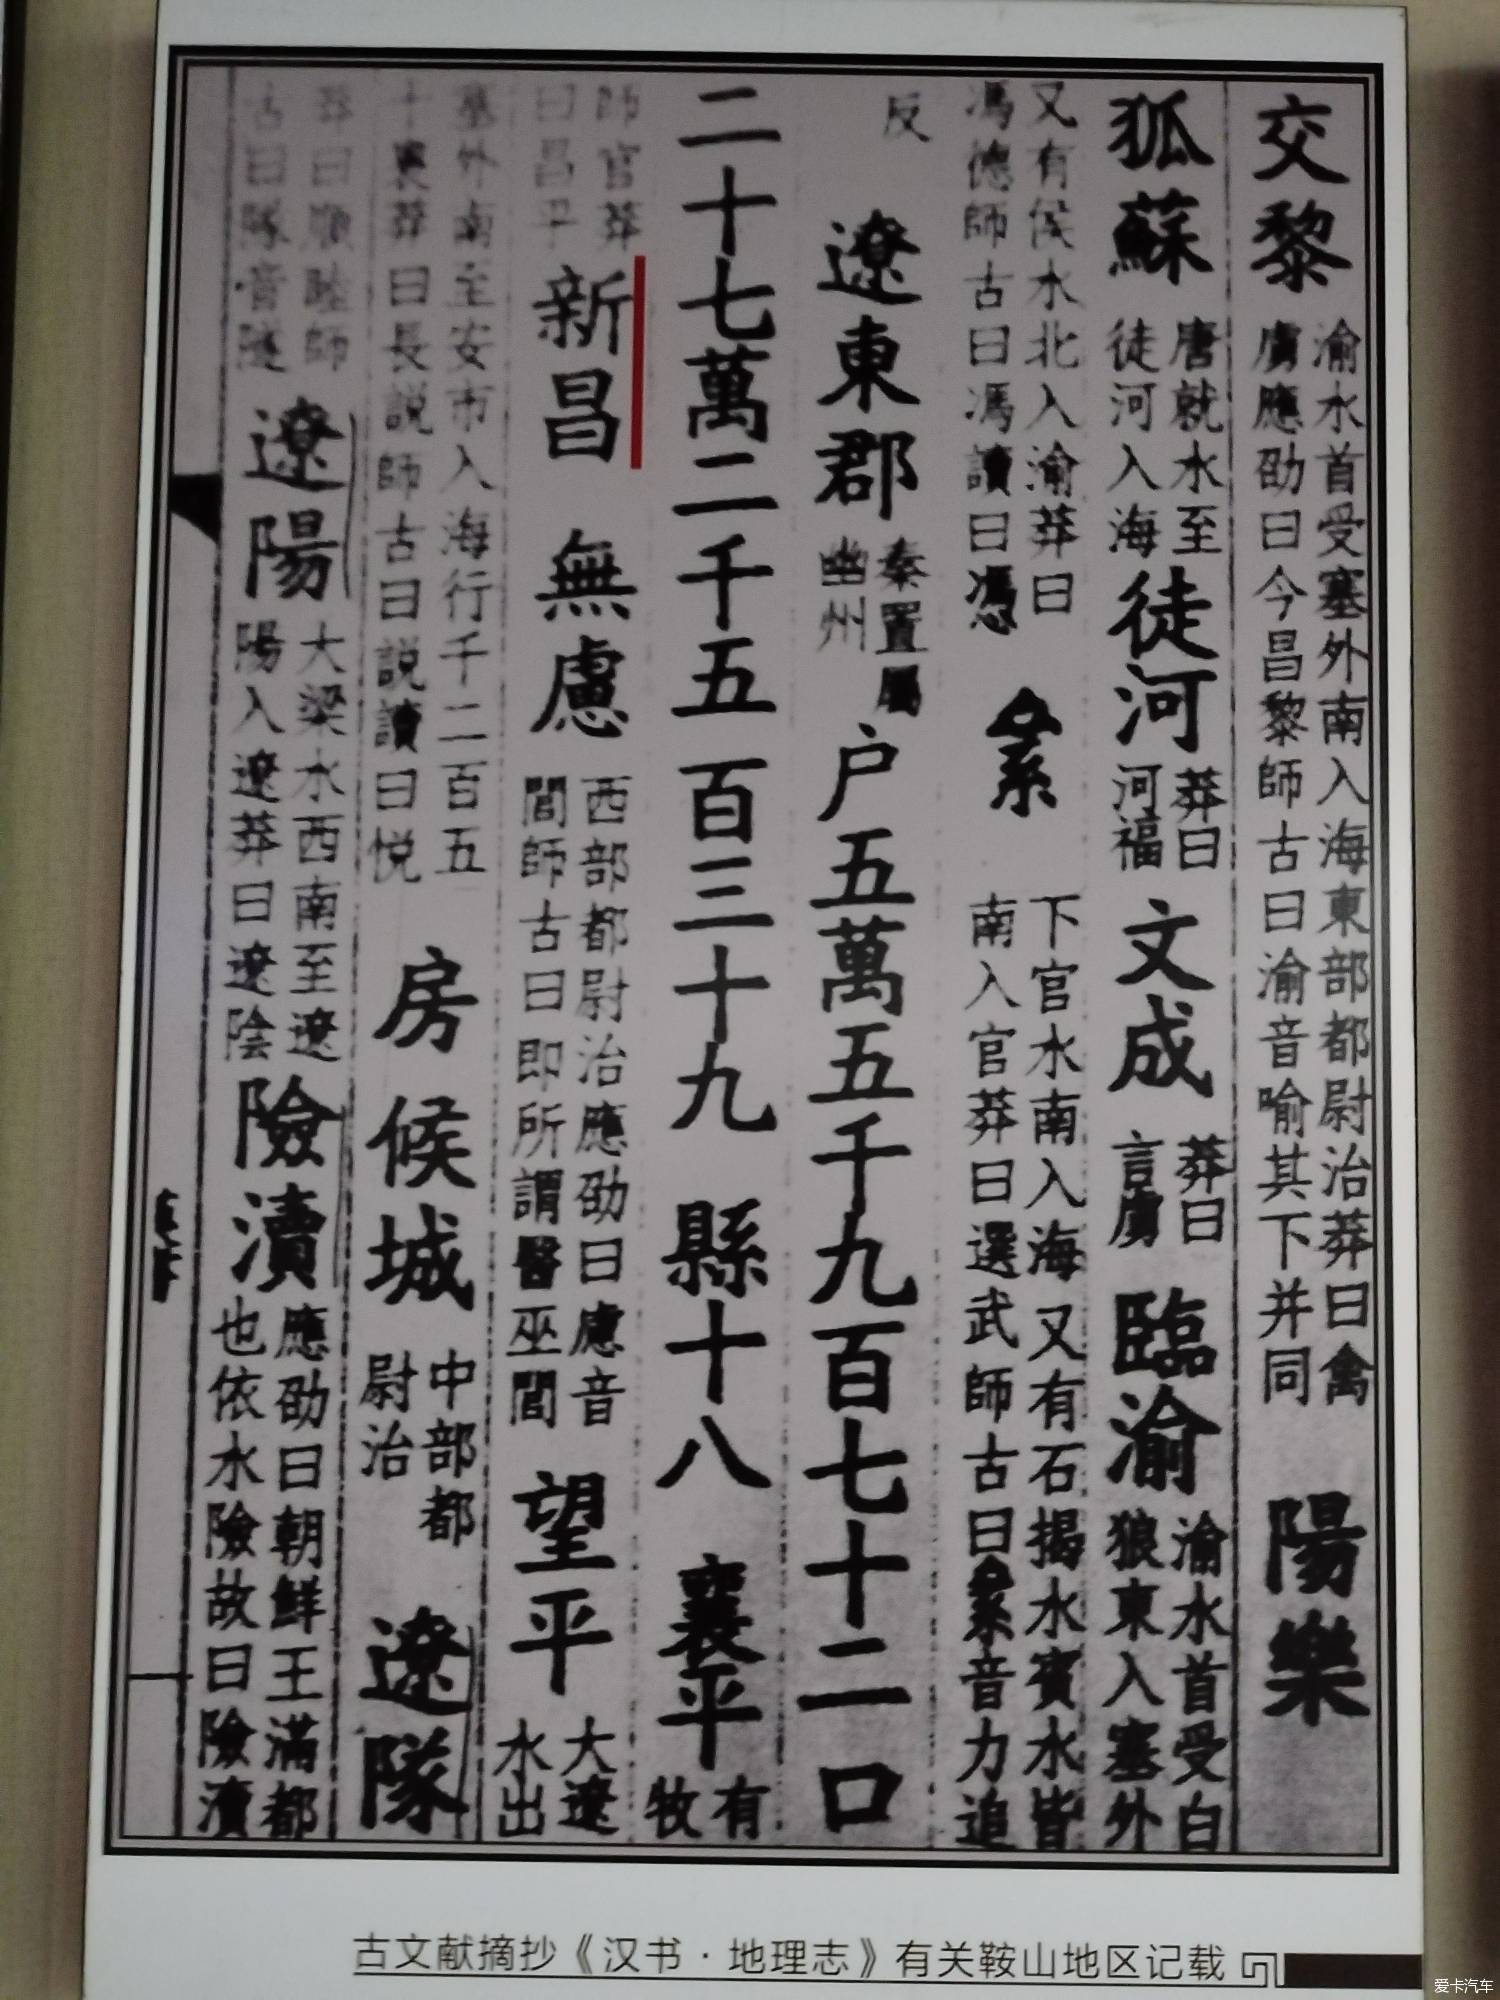 交黎 渝水首受塞外南入海東部都尉治莽曰禽虜應劭曰今昌黎師古曰渝音喻其下并同 陽樂
狐蘇 唐就水至徒河入海 徒河 莽曰河福 文成 莽曰言虜 臨渝 渝水首受白狼東入塞外
又有侯水北入渝莽曰馮德師古曰馮讀曰憑 絫 下官水南入海又有石揭水賓水皆南入官莽曰選武師古曰絫音力追
反 遼東郡 秦置屬幽州 户五萬五千九百七十二口
二十七萬二千五百三十九 縣十八 襄平 有牧
師官莽曰昌平 新昌 無慮 西部都尉治應劭曰慮音閭師古曰即所謂醫巫閭 望平 大遼水出
塞外南至安市入海行千二百五十裏莽曰長説師古曰説讀曰悦 房 候城 中部都尉治 遼隊
莽曰順睦師古曰隊音遂 遼陽 大梁水西南至遼陽入遼莽曰遼陰 險瀆 應劭曰朝鮮王滿都也依水險故曰險瀆
古文献摘抄《汉书·地理志》有关鞍山地区记载
爱卡汽车